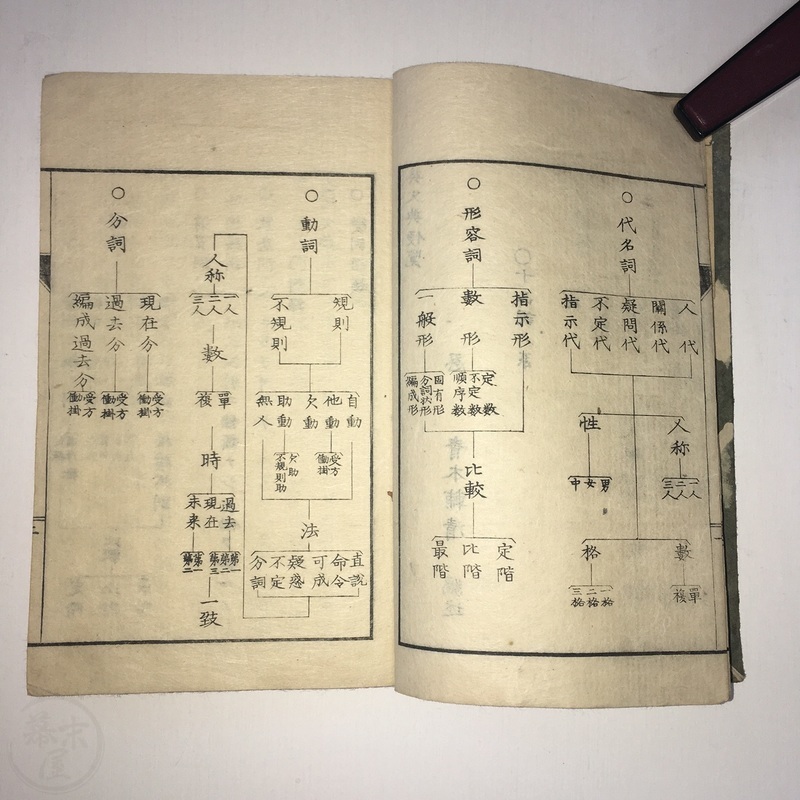 ○代名詞
人代
關係代
疑問代
不定代
指示代
人称
一人
二人
三人
性
男
女
中
數
單
複
格
一格
二格
三格
○形容詞
指示形
數形
一般形
定數
不定數
順序數
固有形
分詞状形
編成形
比較
定階
比階
最階
○動詞
規則
不規則
自動
他動
欠動
助動
無人
受方
働掛
欠助
不規則助
法
直説
命令
可成
疑惑
不定
分詞
人称
一人
二人
三人
數
單
複
時
過去
現在
未来
第一
第二
第三
第一
第二
一致
○分詞
現在分
過去分
編成過去分
受方
働掛
受方
働掛
受方
働掛
幕末屋